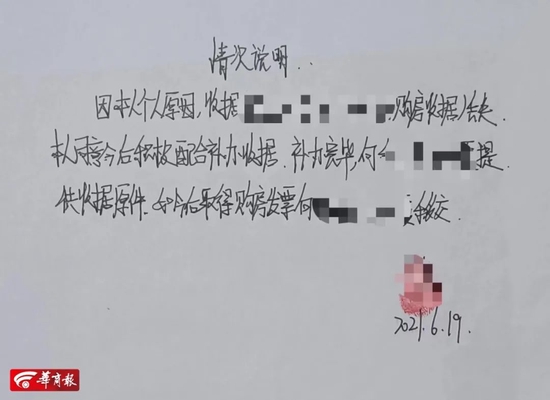 情况说明:
因本人个人原因,收据 购房收据丢失.
本人同意今后积极配合补办收据.补办完毕,向 提
供收据原件.如今后取得购房发票向 交.
2021.6.19.
華商報